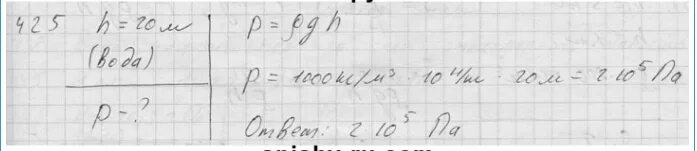 425 h = 20 м
(вода)
p - ?
p = ρgh
p = 1000 кг/м³ · 10 Н/кг · 20 м = 2 · 10⁵ Па
Ответ: 2 · 10⁵ Па